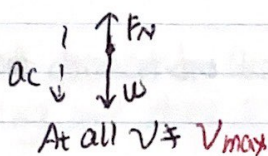 F_N
a_c
W
At all V ≠ V_max